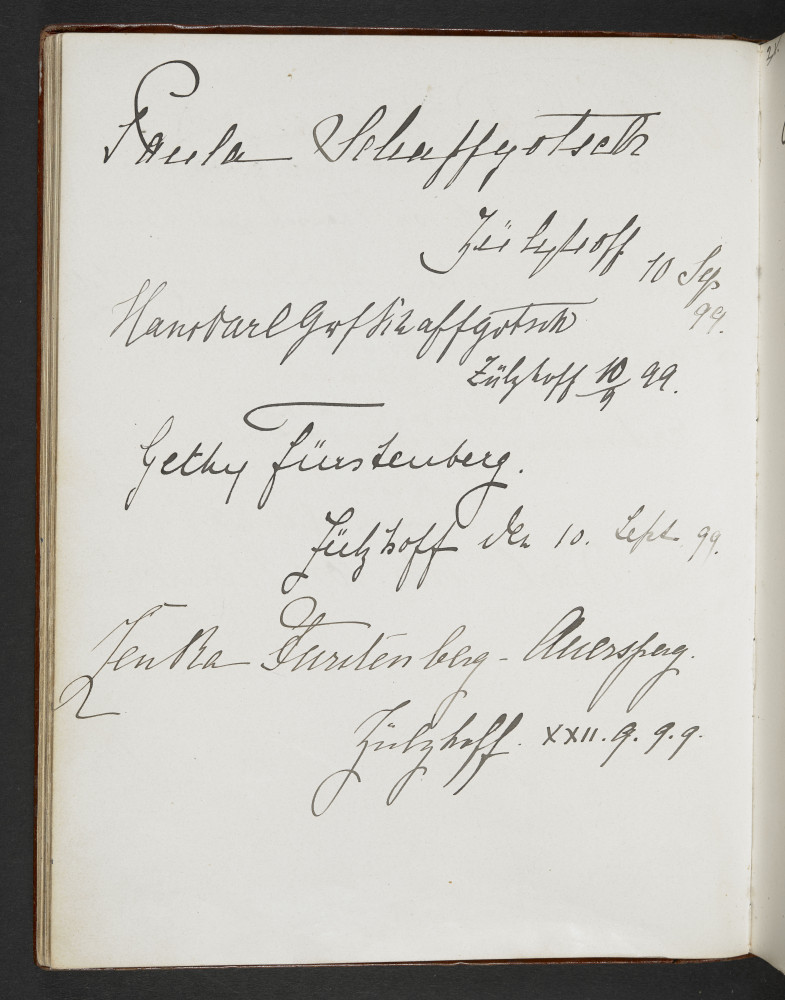 Paula Schaffgotsch
Zülzhoff 10 Sep
99.
Hans Carl Grf Schaffgotsch
Zülzhoff 10/9 99.
Gethy Fürstenberg.
Zülzhoff den 10. Sept. 99.
Jenka Fürstenberg - Auersperg.
Zülzhoff. XXII. 9. 9.9.